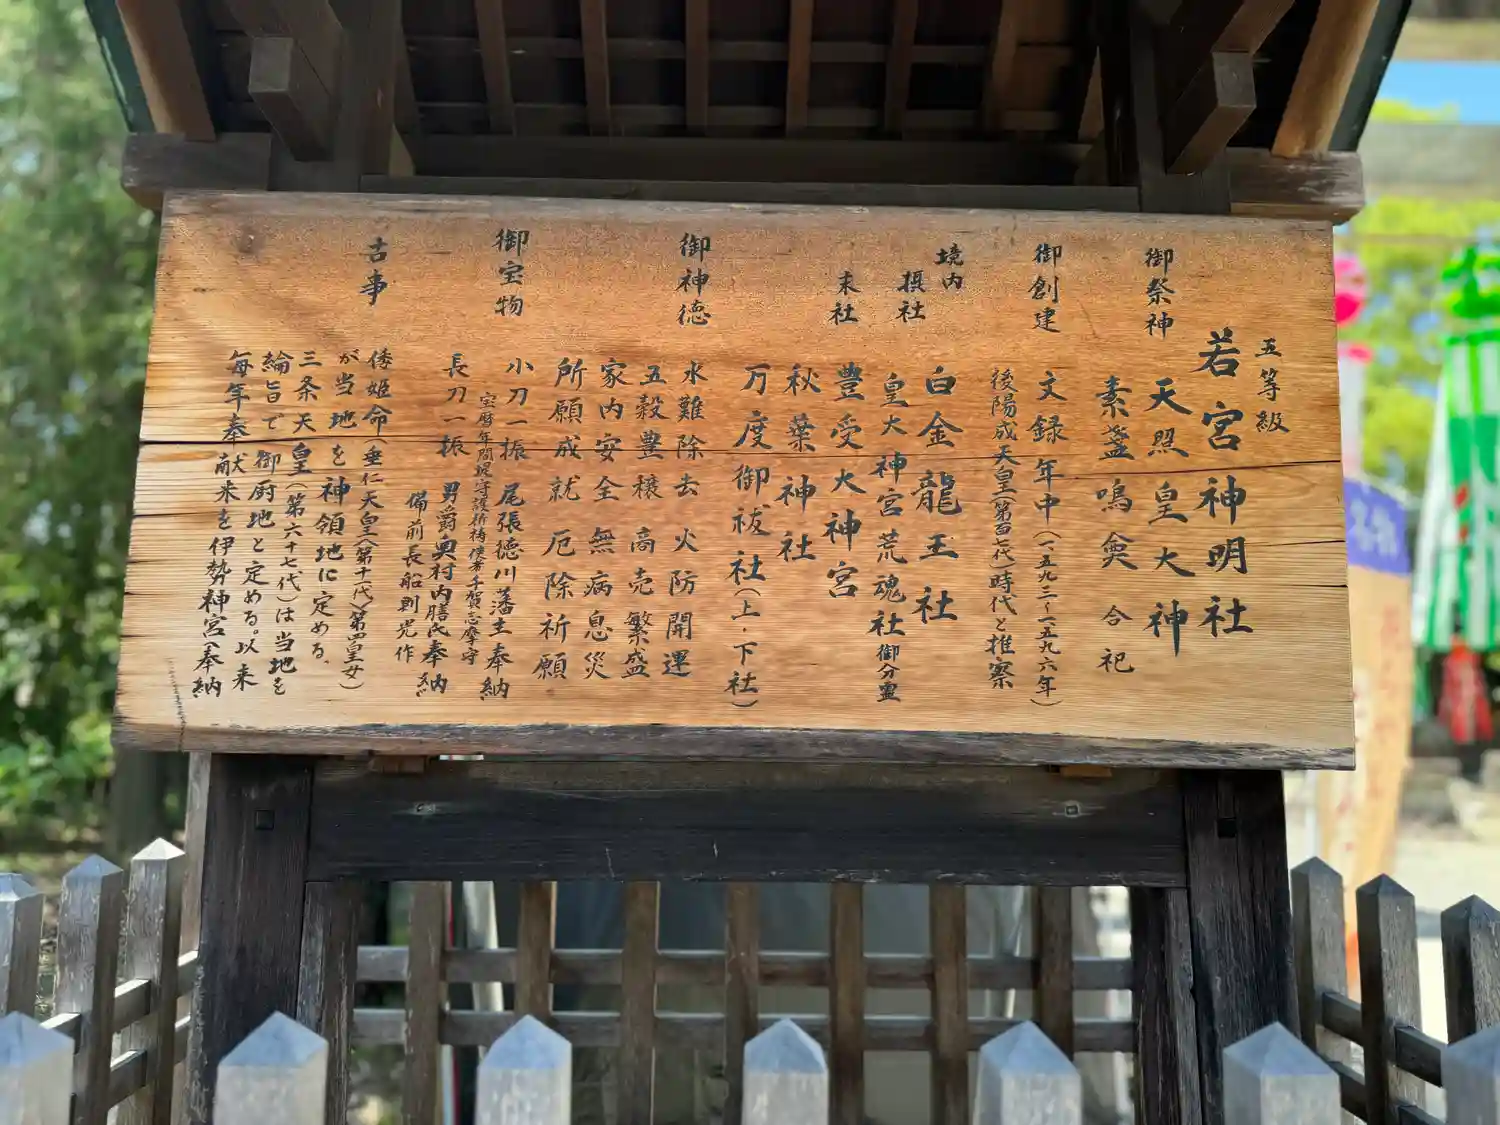 五等級
若宮神明社
御祭神
天照皇大神
素盞嗚命 合祀
御創建
文録年中(一五九三〜一五九六年)
後陽成天皇(第百七代)時代と推察
境内
摂社
白金龍王社
皇大神宮荒魂社 御分霊
末社
豊受大神宮
秋葉神社
万度御祓社(上・下社)
御神徳
水難除去 火防開運
五穀豊穣 高売繁盛
家内安全 無病息災
所願成就 厄除祈願
御宝物
小刀一振 尾張徳川藩主奉納
宝暦年間堤守護祈祷使者千賀志摩守
長刀一振 男爵奥村内膳氏奉納
備前長船則光作
古事
倭姫命(垂仁天皇(第十一代)第四皇女)
が当地を神領地に定める。
三条天皇(第六十七代)は当地を
綸旨で御厨地と定める。以来
毎年奉献米を伊勢神宮へ奉納